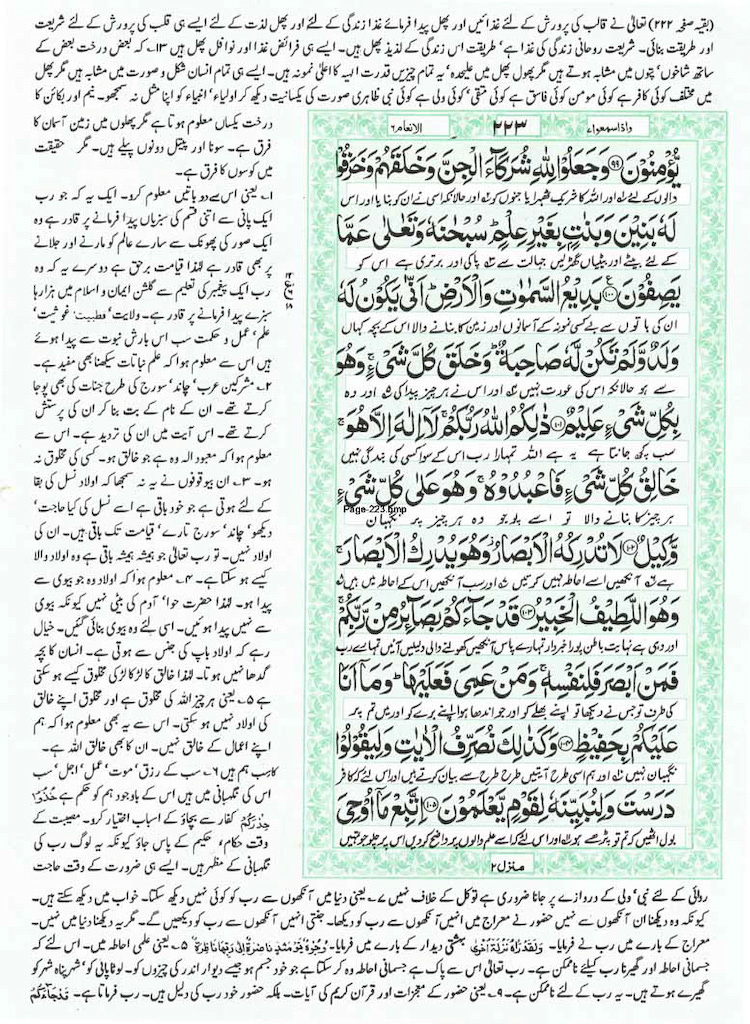 (بقیہ صفحہ ۲۲۲) تعالیٰ نے قالب کی پرورش کے لئے غذائیں اور پھل پیدا فرمائے غذا زندگی کے لئے اور پھل لذت کے لئے ایسے ہی قلب کی پرورش کے لئے شریعت
اور طریقت بنائی۔ شریعت روحانی زندگی کی غذا ہے' طریقت اس زندگی کے لذیذ پھل ہیں۔ ایسے ہی فرائض غذا اور نوافل پھل ہیں ۱۳۔ کہ بعض درخت بعض کے
ساتھ شاخوں' پتوں میں مشابہ ہوتے ہیں مگر پھول پھل میں علیحدہ' یہ تمام چیزیں قدرت الہیہ کا اعلیٰ نمونہ ہیں۔ ایسے ہی تمام انسان شکل و صورت میں مشابہ ہیں مگر پھل
میں مختلف کوئی کافر ہے کوئی مومن کوئی فاسق ہے کوئی متقی' کوئی ولی ہے کوئی نبی ظاہری صورت کی یکسانیت دیکھ کر اولیاء' انبیاء کو اپنا مثل نہ سمجھو۔ نیم اور بکائن کا
درخت یکساں معلوم ہوتا ہے مگر پھلوں میں زمین آسمان کا
فرق ہے۔ سونا اور پیتل دونوں پیلے ہیں۔ مگر حقیقت
میں کوسوں کا فرق ہے۔
۱۔ یعنی اس سے دو باتیں معلوم کرو۔ ایک یہ کہ جو رب
ایک پانی سے اتنی قسم کی سبزیاں پیدا فرمانے پر قادر ہے وہ
ایک صور کی پھونک سے سارے عالم کو مارنے اور جلانے
پر بھی قادر ہے لہٰذا قیامت برحق ہے دوسرے یہ کہ وہ
رب ایک پیغمبر کی تعلیم سے گلشن ایمان و اسلام میں ہزارہا
سبزے پیدا فرمانے پر قادر ہے۔ ولایت' قطبیت' غوثیت'
علم' عمل و حکمت سب اس بارش نبوت سے پیدا ہوئے
ہیں اس سے معلوم ہوا کہ علم نباتات سیکھنا بھی مفید ہے۔
۲۔ مشرکین عرب' چاند' سورج کی طرح جنات کی بھی پوجا
کرتے تھے۔ ان کے نام کے بت بنا کر ان کی پرستش
کرتے تھے۔ اس آیت میں ان کی تردید ہے۔ اس سے
معلوم ہوا کہ معبود الہ وہ ہے جو خالق ہو۔ کسی کی مخلوق نہ
ہو۔ ۳۔ ان بیوقوفوں نے یہ نہ سمجھا کہ اولاد نسل کی بقا
کے لئے ہوتی ہے جو خود باقی ہے اسے نسل کی کیا حاجت'
دیکھو' چاند' سورج تارے' قیامت تک باقی ہیں۔ ان کی
اولاد نہیں۔ تو رب تعالیٰ جو ہمیشہ ہمیشہ باقی ہے وہ اولاد والا
کیسے ہو سکتا ہے۔ ۴۔ معلوم ہوا کہ اولاد وہ جو بیوی سے
پیدا ہو۔ لہٰذا حضرت حوا' آدم کی بیٹی نہیں کیونکہ بیوی
سے نہیں پیدا ہوئیں۔ اسی لئے وہ بیوی بنائی گئیں۔ خیال
رہے کہ اولاد باپ کی جنس سے ہوتی ہے۔ انسان کا بچہ
گدھا نہیں ہوتا۔ لہٰذا خالق کا لڑکا لڑکی مخلوق کیسے ہو سکتی
ہے ۵۔ یعنی ہر چیز اللہ کی مخلوق ہے اور مخلوق اپنے خالق
کی اولاد نہیں ہو سکتی۔ اس سے یہ بھی معلوم ہوا کہ ہم
اپنے اعمال کے خالق نہیں۔ ان کا بھی خالق اللہ ہے۔
کاسب ہم ہیں ۶۔ سب کے رزق' موت' عمل' اجل' سب
اس کی نگہبانی میں ہیں اس کے باوجود ہم کو حکم ہے خُذُوْا
حِذْرَكُمْ کفار سے بچاؤ کے اسباب اختیار کرو۔ مصیبت کے
وقت حکام' حکیم کے پاس جاؤ کیونکہ یہ لوگ رب کی
نگہبانی کے مظہر ہیں۔ ایسے ہی ضرورت کے وقت حاجت
واذاسمعوا۷ ۲۲۳ الانعام۶
يُؤْمِنُوْنَ ﴿۹۹﴾ وَجَعَلُوْا لِلّٰهِ شُرَكَآءَ الْجِنَّ وَخَلَقَهُمْ وَخَرَقُوْا
والوں کے لئے اور اللہ کا شریک ٹھہرایا جنوں کو حالانکہ اسی نے ان کو بنایا اور اس
لَهٗ بَنِيْنَ وَبَنٰتٍ بِغَيْرِ عِلْمٍ سُبْحٰنَهٗ وَتَعٰلٰى عَمَّا
کے لئے بیٹے اور بیٹیاں گھڑلیں جہالت سے پاکی اور برتری ہے اس کو
يَصِفُوْنَ ﴿۱۰۰﴾ بَدِيْعُ السَّمٰوٰتِ وَالْاَرْضِ اَنّٰى يَكُوْنُ لَهٗ
ان کی باتوں سے بے کسی نمونہ کے آسمانوں اور زمین کا بنانے والا اس کے بچہ کہاں
وَلَدٌ وَّلَمْ تَكُنْ لَّهٗ صَاحِبَةٌ وَخَلَقَ كُلَّ شَيْءٍ وَهُوَ
سے ہو حالانکہ اس کی عورت نہیں اور اس نے ہر چیز پیدا کی اور وہ
بِكُلِّ شَيْءٍ عَلِيْمٌ ﴿۱۰۱﴾ ذٰلِكُمُ اللّٰهُ رَبُّكُمْ لَآ اِلٰهَ اِلَّا هُوَ
سب کچھ جانتا ہے یہ ہے اللہ تمہارا رب اس کے سوا کسی کی بندگی نہیں
خَالِقُ كُلِّ شَيْءٍ فَاعْبُدُوْهُ وَهُوَ عَلٰى كُلِّ شَيْءٍ
Page-223.bmp
ہر چیز کا بنانے والا تو اسے پوجو وہ ہر چیز پر نگہبان
وَّكِيْلٌ ﴿۱۰۲﴾ لَا تُدْرِكُهُ الْاَبْصَارُ وَهُوَ يُدْرِكُ الْاَبْصَارَ
ہے آنکھیں اسے احاطہ نہیں کرتیں اور سب آنکھیں اس کے احاطہ میں ہیں
وَهُوَ اللَّطِيْفُ الْخَبِيْرُ ﴿۱۰۳﴾ قَدْ جَآءَكُمْ بَصَآئِرُ مِنْ رَّبِّكُمْ
اور وہی ہے نہایت باطن پورا خبردار تمہارے پاس آنکھیں کھولنے والی دلیلیں آئیں تمہارے رب
فَمَنْ اَبْصَرَ فَلِنَفْسِهٖ وَمَنْ عَمِيَ فَعَلَيْهَا وَمَآ اَنَا
کی طرف تو جس نے دیکھا تو اپنے بھلے کو اور جو اندھا ہوا اپنے برے کو اور میں تم پر
عَلَيْكُمْ بِحَفِيْظٍ ﴿۱۰۴﴾ وَكَذٰلِكَ نُصَرِّفُ الْاٰيٰتِ وَلِيَقُوْلُوْا
نگہبان نہیں اور ہم اسی طرح آیتیں طرح طرح سے بیان کرتے ہیں اور اس لئے کہ کافر
دَرَسْتَ وَلِنُبَيِّنَهٗ لِقَوْمٍ يَّعْلَمُوْنَ ﴿۱۰۵﴾ اِتَّبِعْ مَآ اُوْحِيَ
بول اٹھیں کہ تم تو پڑھے ہو اور اس لئے کہ اسے علم والوں پر واضح کردیں اس پر چلو جو تمہیں
منزل۲
روائی کے لئے نبی' ولی کے دروازے پر جانا ضروری ہے توکل کے خلاف نہیں ۷۔ یعنی دنیا میں آنکھوں سے رب کو کوئی نہیں دیکھ سکتا۔ خواب میں دیکھ سکتے ہیں۔
کیونکہ وہ دیکھنا ان آنکھوں سے نہیں حضور نے معراج میں انہیں آنکھوں سے رب کو دیکھا۔ جنتی انہیں آنکھوں سے رب کو دیکھیں گے۔ مگر یہ دیکھنا دنیا میں نہیں۔
معراج کے بارے میں رب نے فرمایا۔ وَلَقَدْ رَاٰهُ نَزْلَةً اُخْرٰى بہشتی دیدار کے بارے میں فرمایا۔ وُجُوْهٌ يَّوْمَئِذٍ نَّاضِرَةٌ اِلٰى رَبِّهَا نَاظِرَةٌ ۸۔ یعنی علمی احاطہ میں۔ اس لئے کہ
جسمانی احاطہ اور گھیرنا رب کیلئے ناممکن ہے۔ رب تعالیٰ اس سے پاک ہے جسمانی احاطہ وہ کر سکتا ہے جو خود جسم ہو جیسے دیوار اندر کی چیزوں کو۔ لوٹا پانی کو' شہر پناہ شہر کو
گھیرے ہوتے ہیں۔ یہ رب کے لئے ناممکن ہے۔ ۹۔ یعنی حضور کے معجزات اور قرآن کریم کی آیات۔ بلکہ حضور خود رب کی دلیل ہیں۔ رب فرماتا ہے۔ قَدْ جَآءَكُمْ